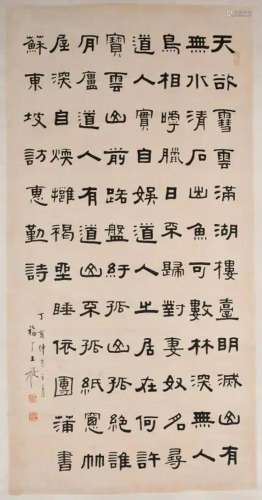 天欲雪雲滿湖樓臺明滅山有
無水清石出魚可數林深無人
鳥相嘑臘日不歸對妻奴名尋
道人實自娛道人之居在何許
寶雲山前路盤紆孤山孤絕誰
肎廬道人有道山不孤紙窗竹
屋深自煖擁褐坐睡依團蒲書
蘇東坡訪惠勤詩
丁亥仲
福厂王禔